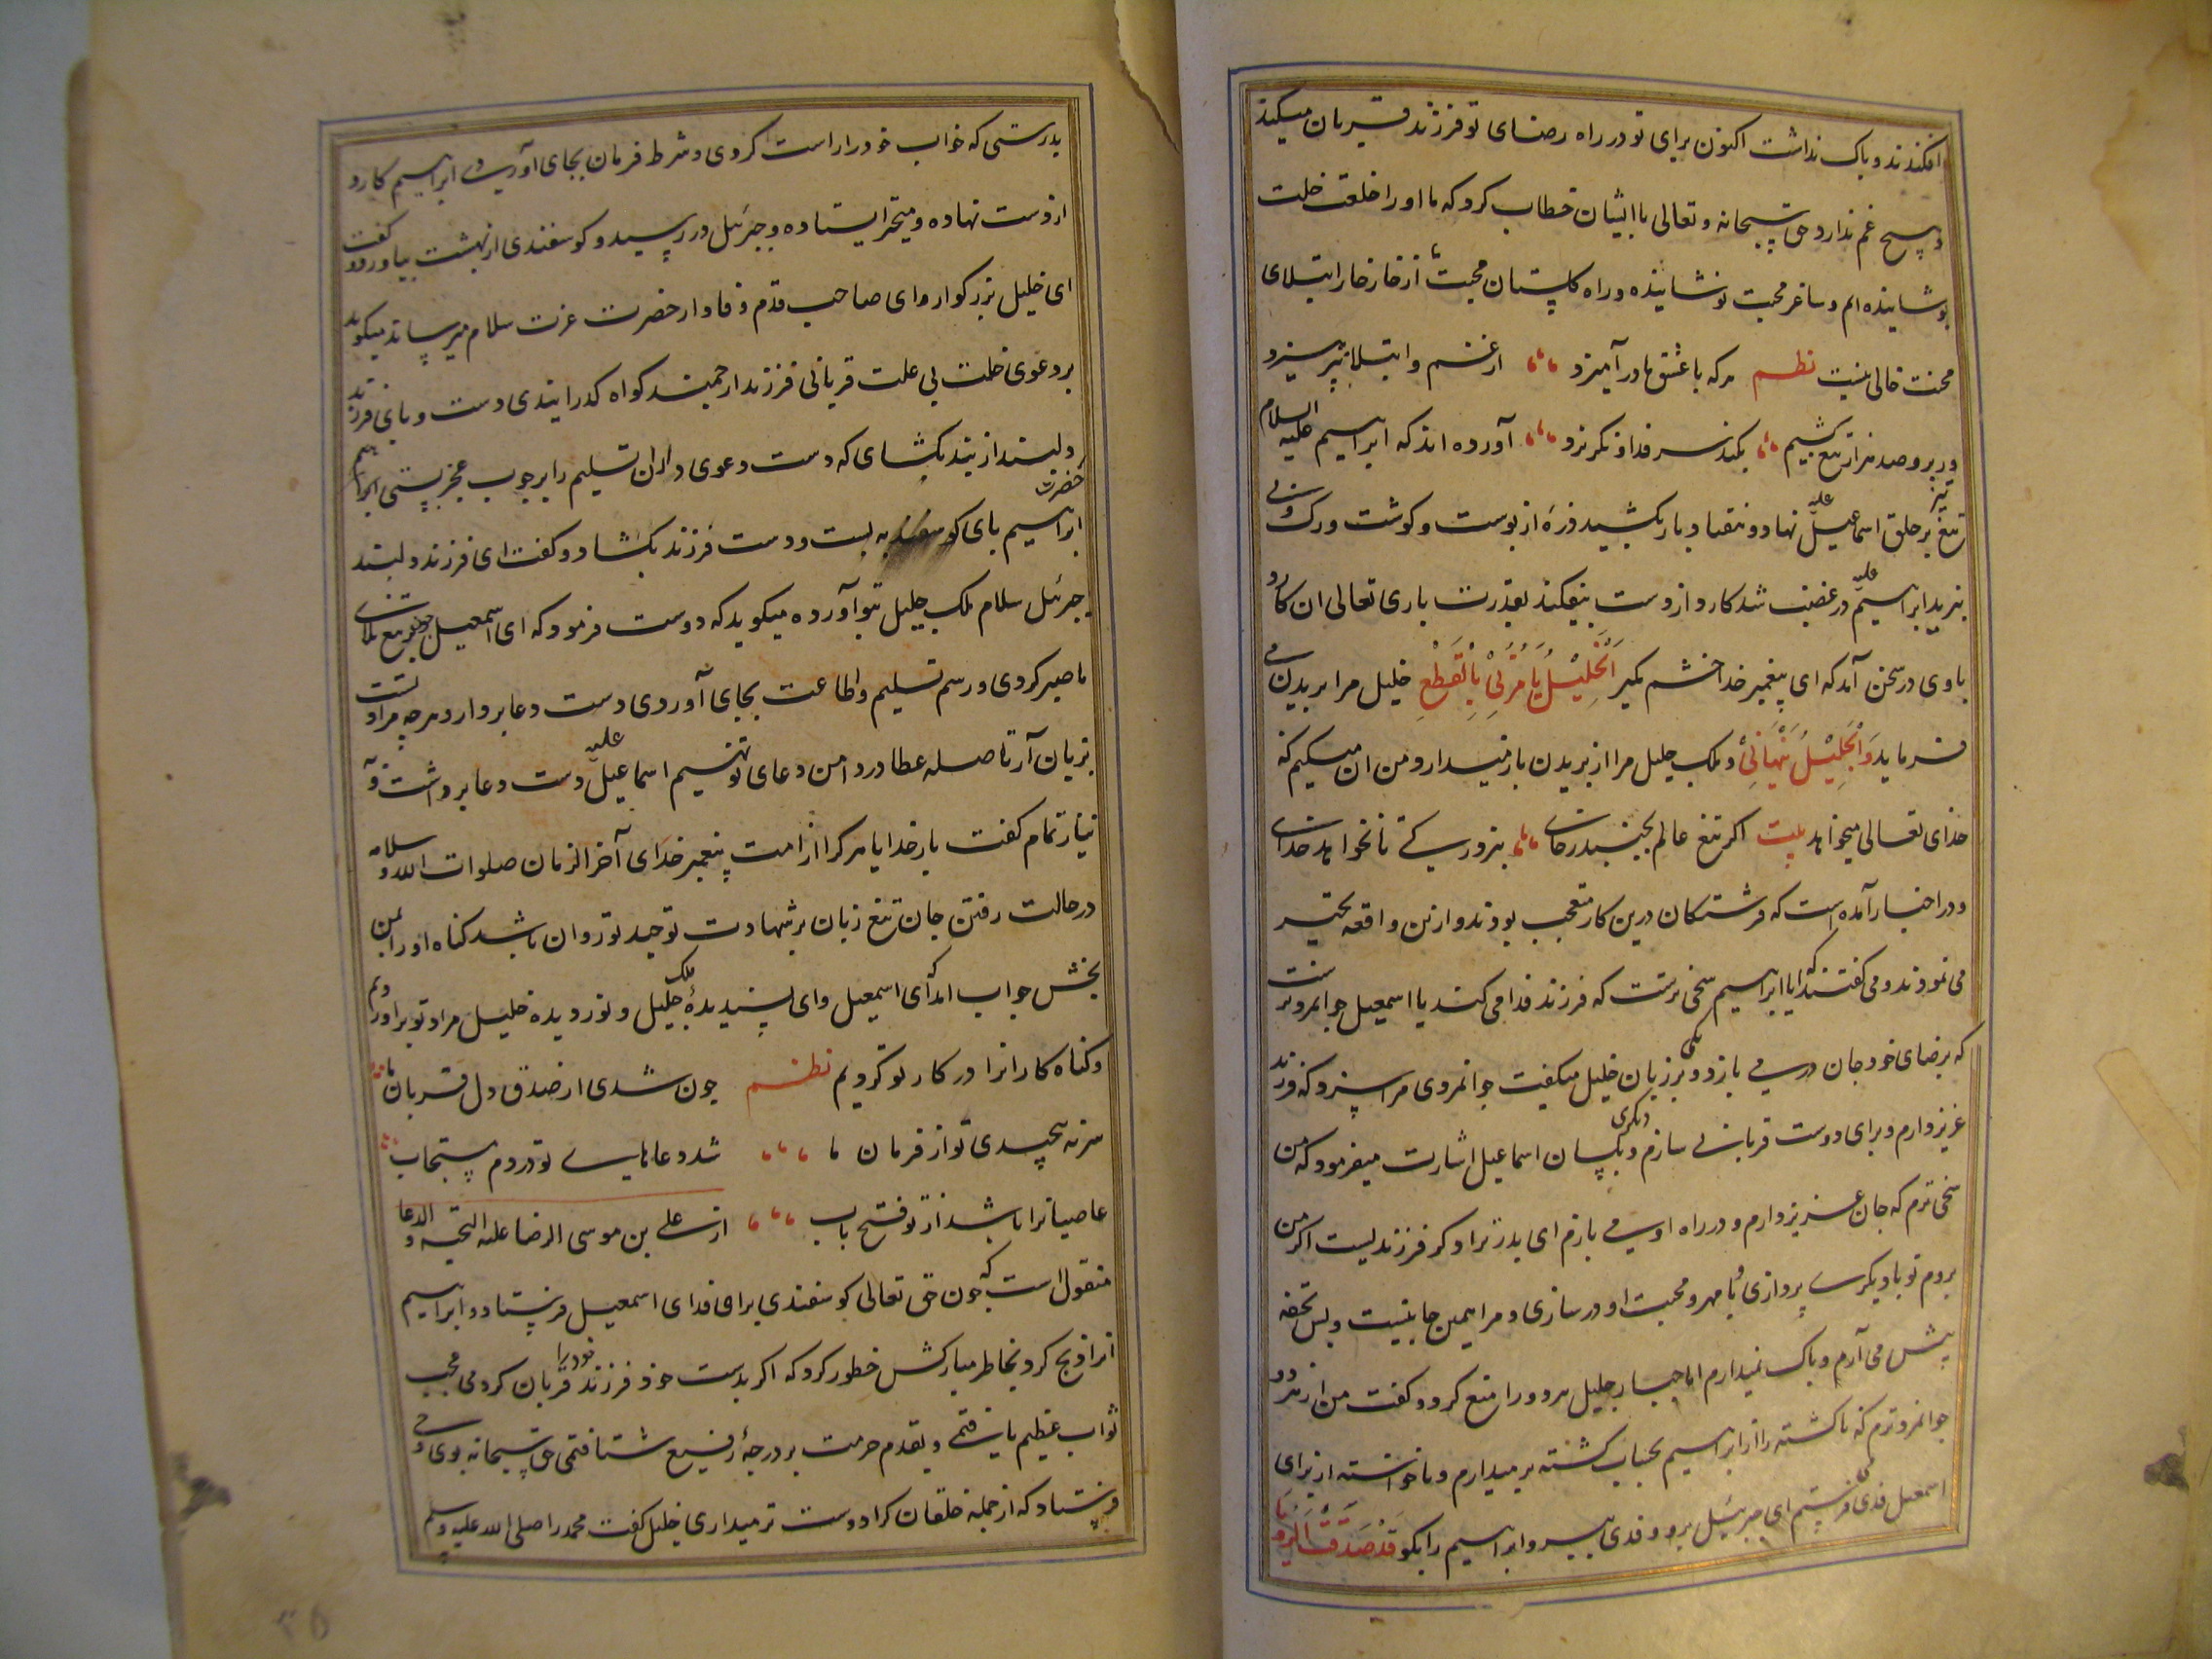 افکندند و باک نداشت اکنون برای تو در راه رضای تو فرزند قربان میکند
و هیچ غم ندارد حق سبحانه و تعالی با ایشان خطاب کرد که ما او را خلعت خلت
پوشانیده ایم و ساغر محبت نوشانیده و راه کلستان محبت ما از خار خار ابتلای
محنت خالی نیست نظم هر که با عشق ما در آمیزد از غم و ابتلا نپرهیزد
ور برو صد هزار تیغ کشیم بکند سر فدا و نکریزد آورده اند که ابراهیم علیه السلام
تیغ تیز بر حلق اسماعیل علیه نهاد و هفتاد بار بکشید ذره از پوست و کوشت و رک وی
نبرید ابراهیم علیه در غضب شد کارد از دست بیفکند بقدرت باری تعالی ان کارد
با وی در سخن آمد که ای پیغمبر خدا خشم مکیر اَلْخَلِیْلُ یَامُرُنِیْ بِالْقَطْعِ خلیل مرا ببریدن می
فرماید وَالْجَلِیْلُ یَنْهَانِیْ و ملک جلیل مرا از بریدن باز میدارد من ان میکنم که
خدای تعالی میخواهد بیت اکر تیغ عالم بجنبد ز جای نبرد رکی تا نخواهد خدای
و در اخبار آمده است که فرشتکان درین کار متعجب بودند و ازین واقعه تحیر
می نمودند و می کفتند که آیا ابراهیم سخی ترست که فرزند فدا می کند یا اسمعیل جوانمردتر است
که برضای خود جان در می بازد و یکی بر زبان خلیل میکفت جوانمردی مرا سزد که فرزند
عزیز دارم و برای دوست قربانی سازم و دیکری بلسان اسماعیل اشارت میفرمود که من
سخی ترم که جان عزیز دارم و در راه او می بازم ای پدر ترا دکر فرزند هست اکر من
بروم تو با دیکری پردازی و با مهر و محبت او در سازی و مرا همین جانیست و بس تحفه
پیش می آرم و باک نمیدارم اما جبار جلیل هر دو را منع کرد و کفت من از هر دو
جوانمردترم که ناکشته را از ابراهیم بحساب کشته بر میدارم و ناخواسته از برای
اسمعیل فدی می فرستم ای جبرئیل برو و فدی ببر و ابراهیم را بکو قَدْ صَدَّقْتَ الرُّؤْیَا
بدرستی که خواب خود را راست کردی و شرط فرمان بجای آوردی ابراهیم کارد
از دست نهاده و متحیر ایستاده و جبرئیل در رسید و کوسفندی از بهشت بیاورد و کفت
ای خلیل بزرکوار و ای صاحب قدم وفادار حضرت عزت سلام میرساند میکوید
بر دعوی خلت بی علت قربانی فرزند ارجمند کواه کذرانیدی دست و پای فرزند
دلبند از بند بکشای که دست دعوی داران تسلیم را بر چوب عجز بستی ابراهیم
حضرت ابراهیم پای کوسفند به بست و دست فرزند بکشاد و کفت ای فرزند دلبند
جبرئیل سلام ملک جلیل بتو آورده میکوید که دوست فرمود که ای اسمعیل چون بر تیغ بلای
ما صبر کردی و رسم تسلیم و اطاعت بجای آوردی دست دعا بردار و هر چه مراد تست
بزبان آر تا صله عطا در دامن دعای تو نهیم اسماعیل علیه دست دعا برداشت و
نیاز تمام کفت بار خدایا هر کرا از امت پیغمبر خدای آخر الزمان صلوات الله و سلامه
در حالت رفتن جان تیغ زبان بر شهادت توحید تو روان باشد کناه او را بمن
بخش جواب امد که ای اسمعیل و ای پسندیده ملک جلیل و نور دیده خلیل مراد تو بر آوردم
و کناه کارانرا در کار تو کردیم نظم چون شدی از صدق دل قربان ما
سر نه پیچیدی تو از فرمان ما شد دعاهای تو در دم مستجاب
عاصیانرا باشد از تو فتح باب از علی بن موسی الرضا علیه التحیه و الدعا
منقول است که چون حق تعالی کوسفندی برای فدای اسمعیل فرستاد و ابراهیم
انرا ذبح کرد بخاطر مبارکش خطور کرد که اکر بدست خود فرزند خود را قربان کردمی عجب
ثواب عظیم یافتمی و بقدم حرمت بر درجهٔ رفیع شتافتمی حق سبحانه بوی وحی
فرستاد که از جمله خلقان کرا دوست تر میداری خلیل کفت محمد را صلی الله علیه و سلم
۳۵